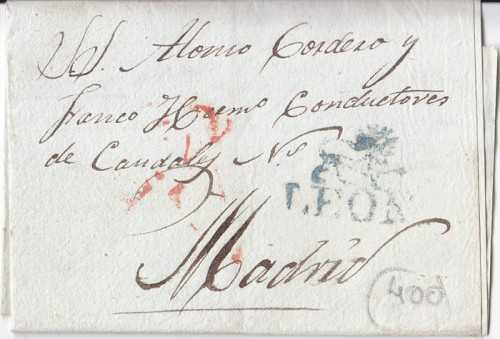 SS. Alonso Cordero y
Franco Herm.º Conductores
de Caudales N.s
LEON
Madrid
400